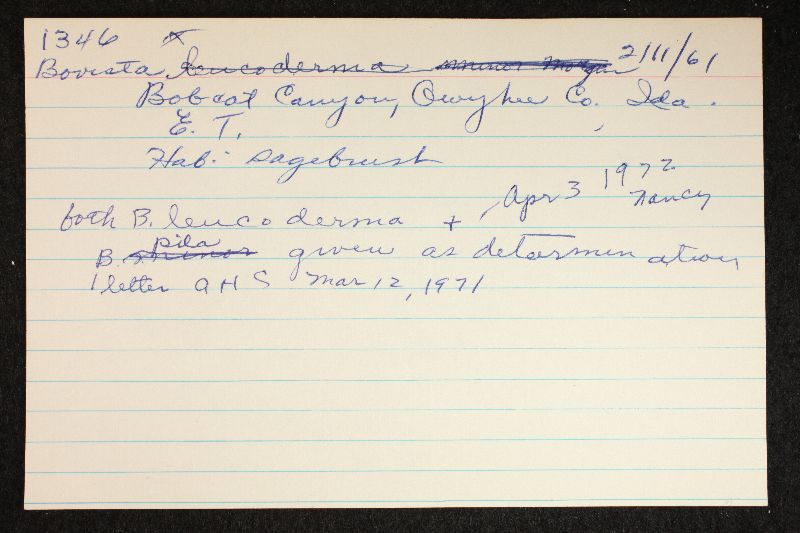 1346 x
Bovista leucoderma minor Morgan 2/11/61
Bobcat Canyon, Owyhee Co. Ida.
E. T.
Hab: sagebrush
Apr 3 1972
Nancy
both B. leucoderma +
pila
B. minor given as determination
letter A H S Mar 12, 1971